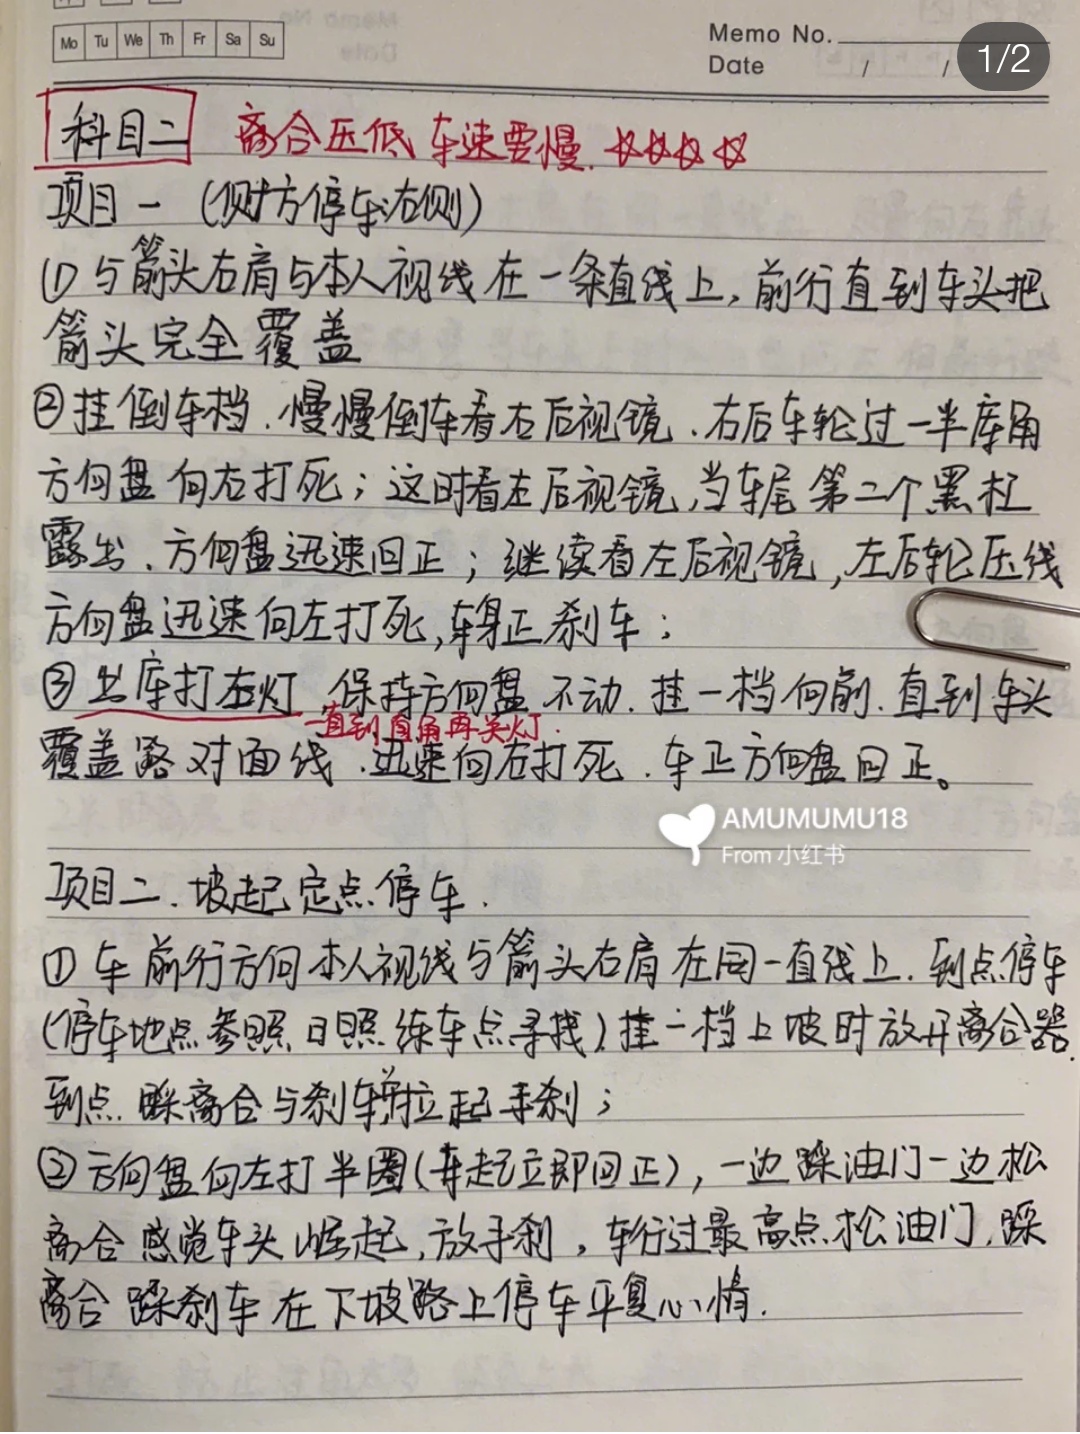 Mo Tu We Th Fr Sa Su
Memo No.
Date / /
1/2
科目二 离合压低 车速要慢. ☆☆☆☆
项目一 (侧方停车右侧)
① 与箭头右肩与本人视线在一条直线上,前行直到车头把
箭头完全覆盖
②挂倒车档.慢慢倒车看右后视镜.右后车轮过一半库角
方向盘向右打死;这时看左后视镜,当车尾第二个黑杠
露出、方向盘迅速回正;继续看左后视镜,左后轮压线
方向盘迅速向左打死,车身正刹车;
③出库打左灯,保持方向盘不动.挂一档向前.直到车头
一直到直角再关灯.
覆盖路对面线.迅速向右打死.车正方向盘回正。
AMUMUMU18
From 小红书
项目二.坡起定点停车.
① 车前行方向本人视线与箭头右肩在同一直线上.到点停车
(停车地点参照日照练车点寻找)挂一档上坡时放开离合器.
到点.踩离合与刹车并拉起手刹;
②方向盘向左打半圈(车起立即回正),一边踩油门一边松
离合感觉车头崛起,放手刹,车行过最高点松油门.踩
离合踩刹车在下坡路上停车平复心情.